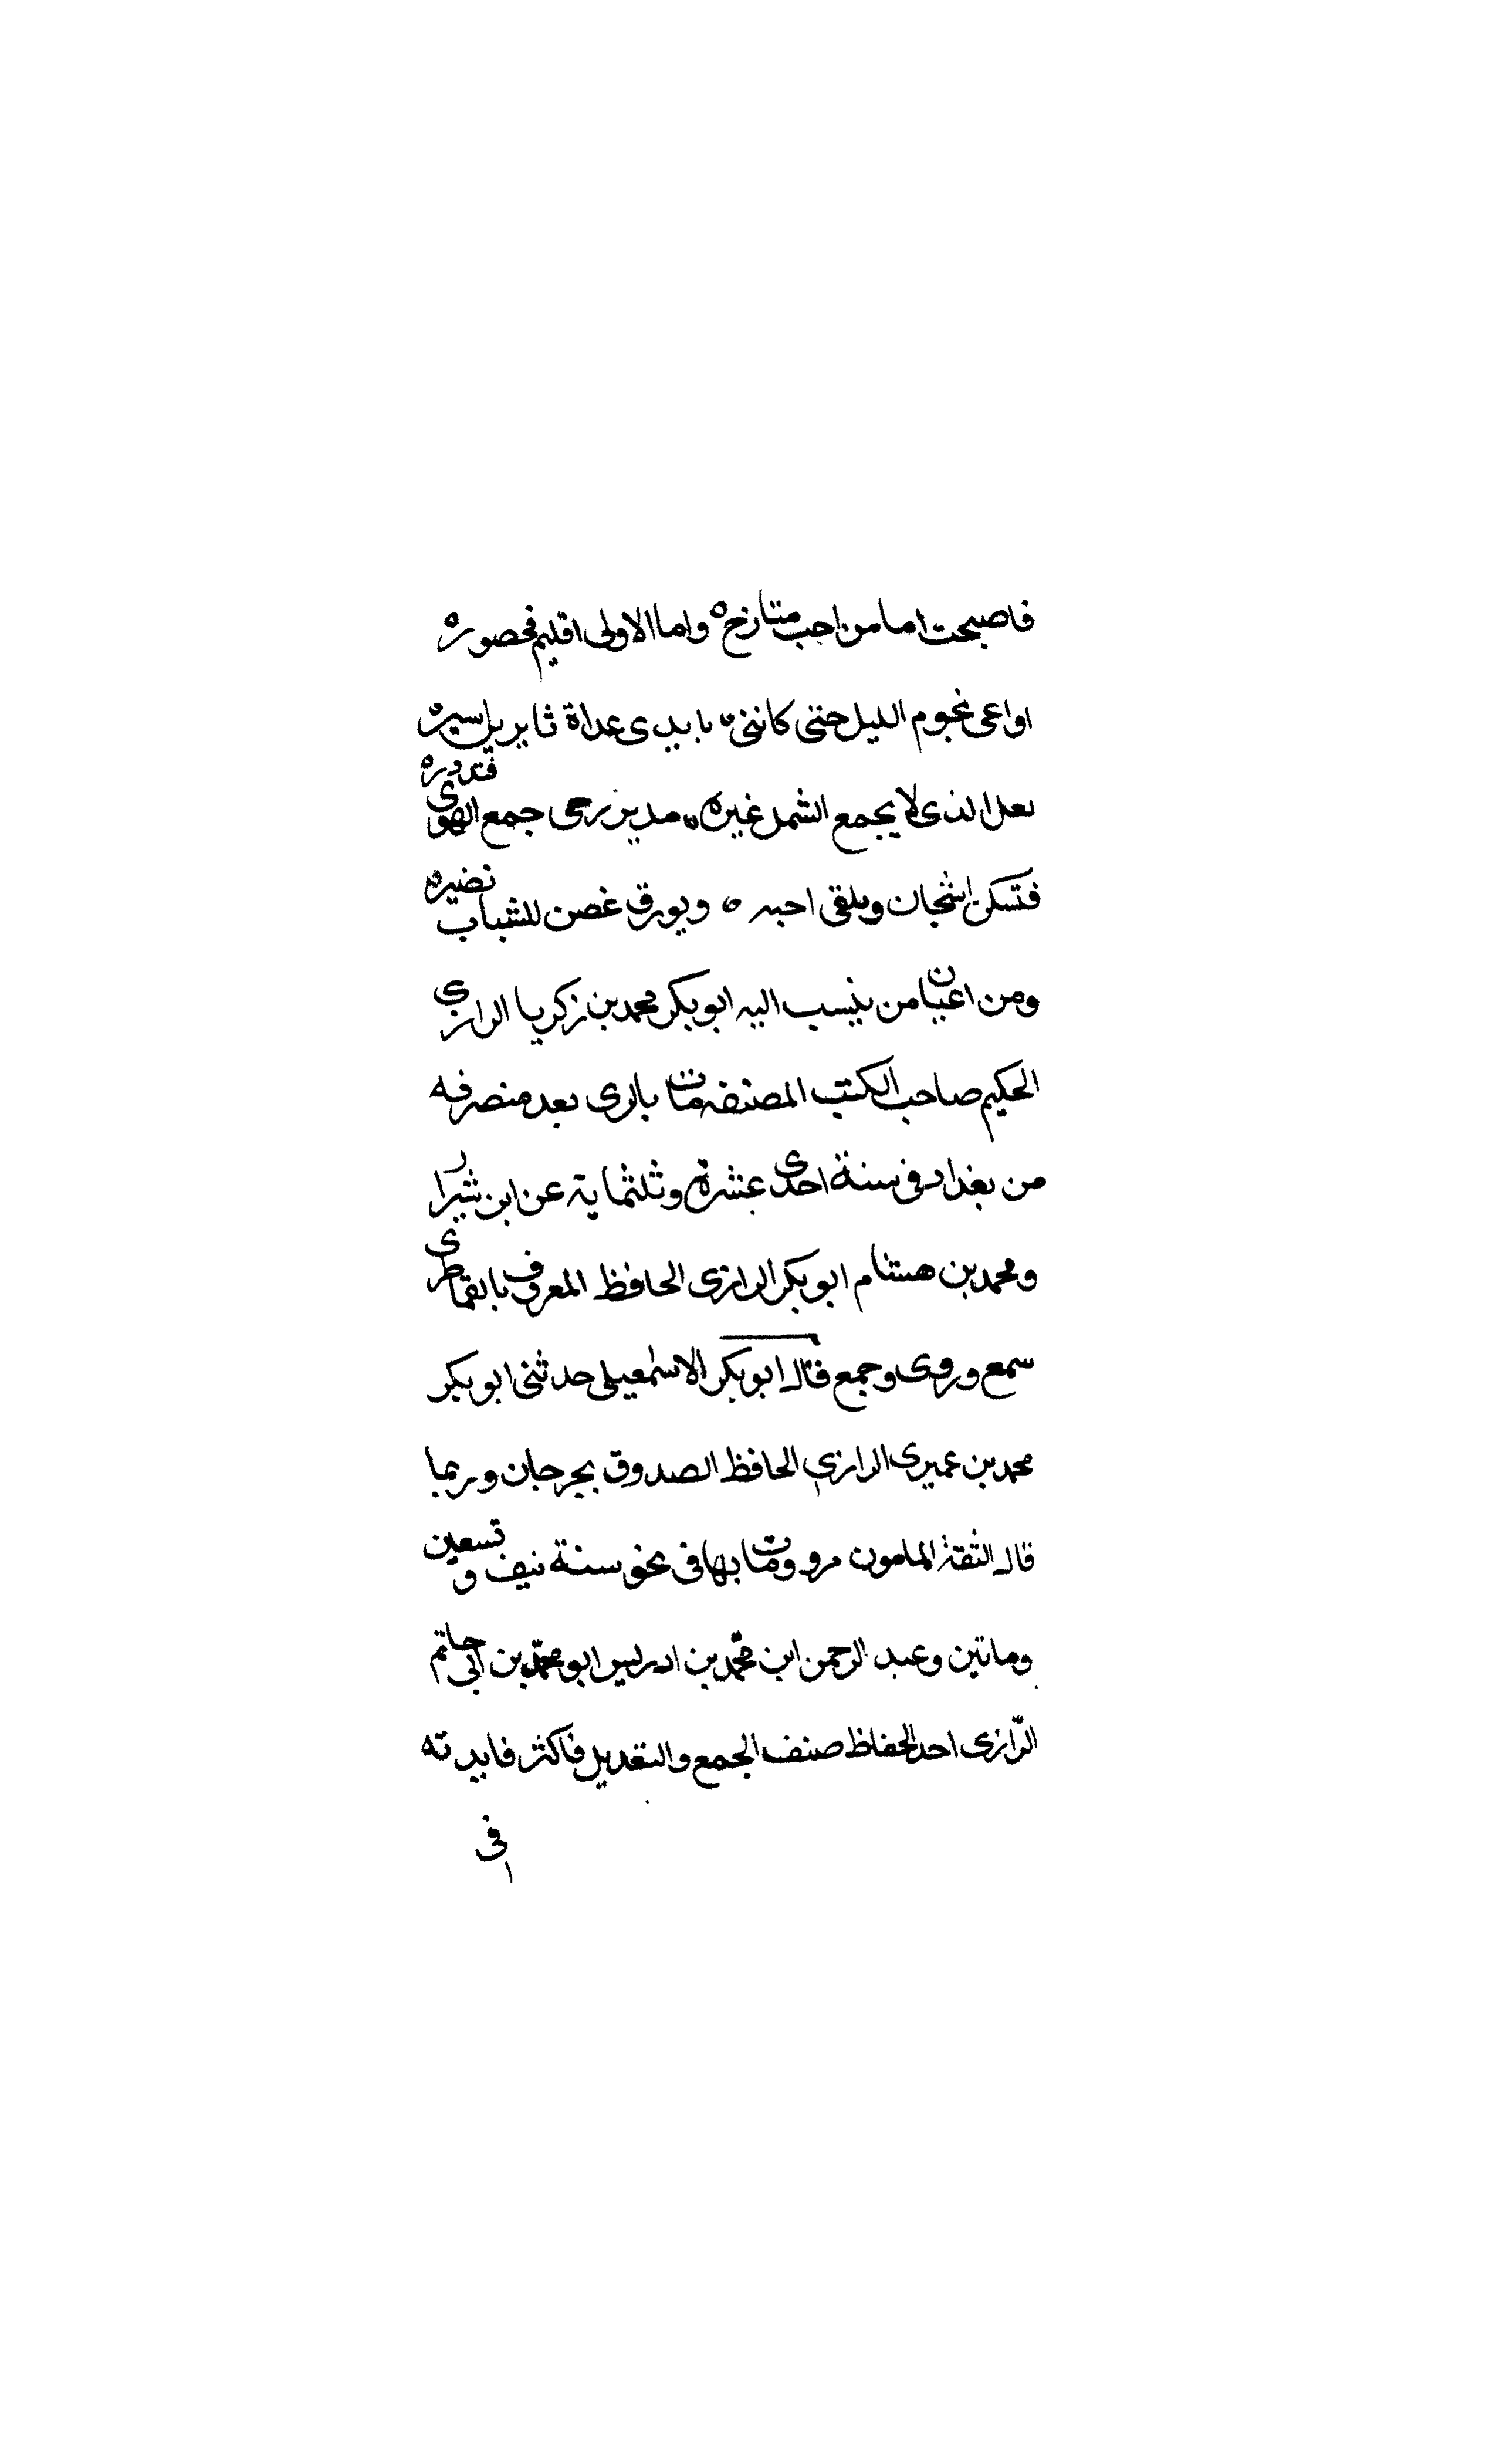 فاصبحت اما من احب متنازح ه واما الاولى اقليم فحصوره
اواعى نجوم الليل حتى كاننى ه بايدى عداة ثايرين اسيره
لعل الذى لا يجمع الشمل غيره ه مدير رحى جمع الهوى فتديره
فتسكن اشجان ويلقى احبه ه ويورق غصن للشباب نضيره
ومن اعيان من ينسب اليه ابو بكر محمد بن زكريا الرازى
الحكيم صاحب الكتب المصنفه مات بالرى بعد منصرفه
من بغداد فى سنة احدى عشرة وثلثماية عن ابن شيرا
ومحمد بن هشام ابو بكر الرازى الحافظ المعروف بالقماطرى
سمع وروى وجمع قال ابو بكر الاسمعيلى حدثنى ابو بكر
محمد بن عميرى الرازي الحافظ الصدوق بجرجان وربما
قال الثقة المامون مرو ومات بها فى نحو سنة نيف و تسعين
وماتين وعبد الرحمن ابن محمّد بن ادريس ابو محمّد بن ابى حاتم
الرّازى احد الحفاظ صنف الجمع والتعديل فاكثر فايدته
فى